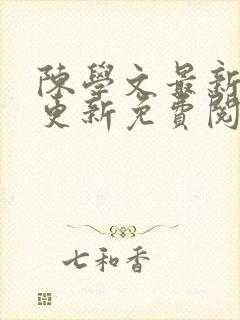 陳學文最新
更新免費閱
七和香